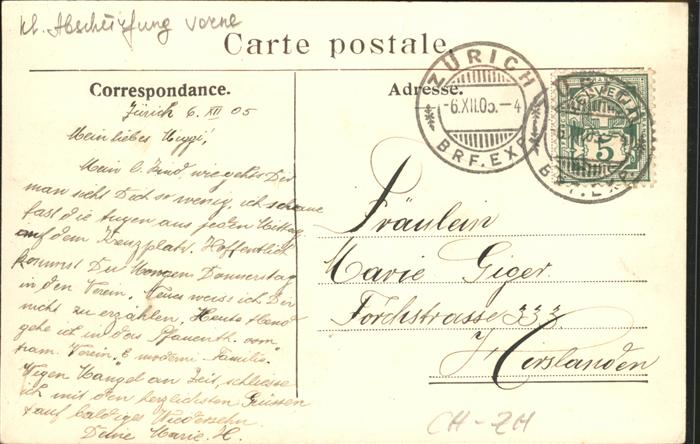 kl. Abschürfung vorne
Carte postale.
Correspondance.
Adresse.
ZÜRICH
-6.XII.05.-4
BRF.EXP.
HELVETIA
5
Zürich 6. XII 05
Mein liebes
Mein l. Kind, wie geht es Dir
man sieht Dich so wenig, ich schaue
fast die Augen aus jeden Mittag
auf dem Kreuzplatz. Hoffentlich
kommst Du Morgen Donnerstag
in den Verein. Neues weiss ich Dir
nicht zu erzählen. Heute Abend
gehe ich in das Pfauenth. vom
dram. Verein. "E moderni Familie".
Wegen Mangel an Zeit, schliesse
ich mit den herzlichsten Grüssen
auf baldiges Wiedersehn
Deine Marie. H.
Fräulein
Marie Giger.
Forchstrasse 333
Hirslanden
CH-ZH